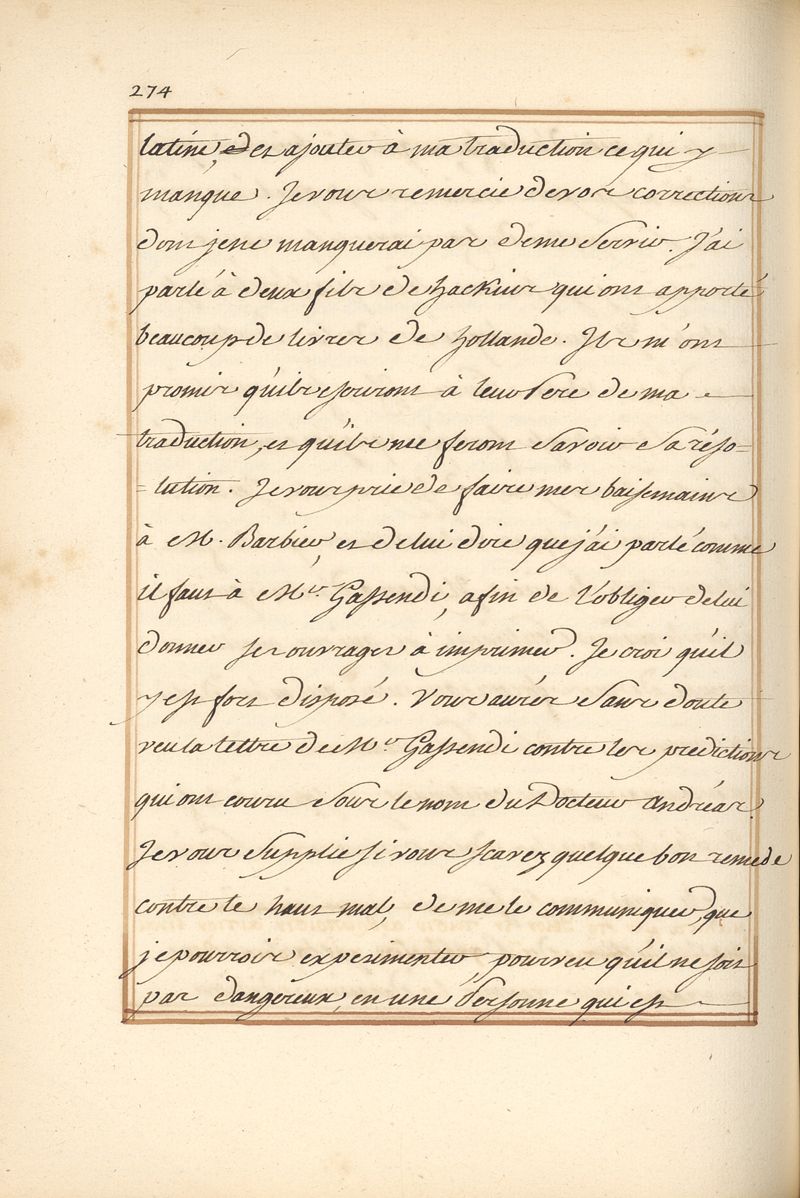 274
latine, et d'ajouter à ma traduction ce qui y
manque. Je vous remercie de vos corrections
dont je ne manquerai pas de me servir. J'ai
parlé à deux fils de Hackius qui ont apporté
beaucoup de livres de hollande. Ils m'ont
promis qu'ils escriront à leur Pere de ma
traduction, et qu'ils me feront savoir sa réso=
=lution. Je vous prie de faire mes baisemains
à M. Barbier, et de lui dire que j'ai parlé comme
il faut à Mr. Gassendi, afin de l'obliger de lui
donner ses ouvrages à imprimer. Je croi qu'il
y est fort disposé. Vous aurés sans doute
veu la lettre de Mr. Gassendi contre les predictions
qui ont couru sous le nom du Docteur Andréas.
Je vous supplie si vous scavez quelque bon remede
contre le haut mal, de me le communiquer, que
je pourrois experimenter, pourveu qu'il ne soit
pas dangereux, en une Personne qui est